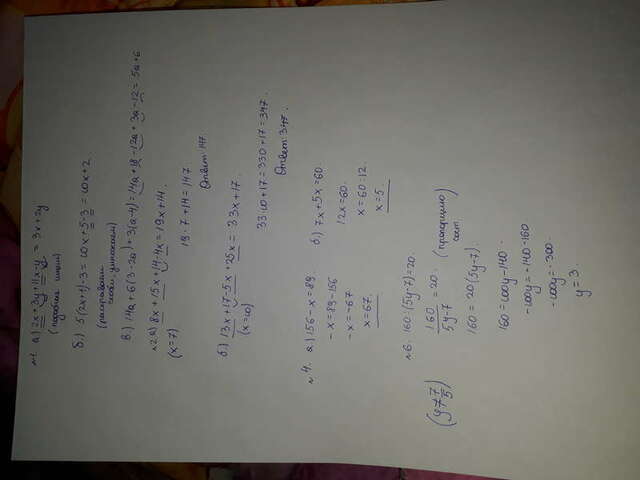 №1. а) 2x+3y+11x-y = 3x+2y
(подобные
б) 5(2x+1)-3=10x+5-3=10x+2.
(раскрываем
скобки
в) 14a+6(3-2a)+3(a-4)=14a+18-12a+3a-12=5a+6
№2. а) 8x+15x+14-4x=19x+14.
(x=7)
19·7+14=147
Ответ: 147
б) 13x+17-5x+25x=33x+17.
(x=10)
33·10+17=330+17=347.
Ответ: 347.
№4. а) 156-x=89
-x=89-156
-x=-67
x=67.
б) 7x+5x=60
12x=60.
x=60:12.
x=5
№6. 160:(5y-7)=20.
160/5y-7 = 20. (пропорцию
сост.)
(y≠7/5)
160=20(5y-7).
160=100y-140.
-100y=-140-160
-100y=-300.
y=3.